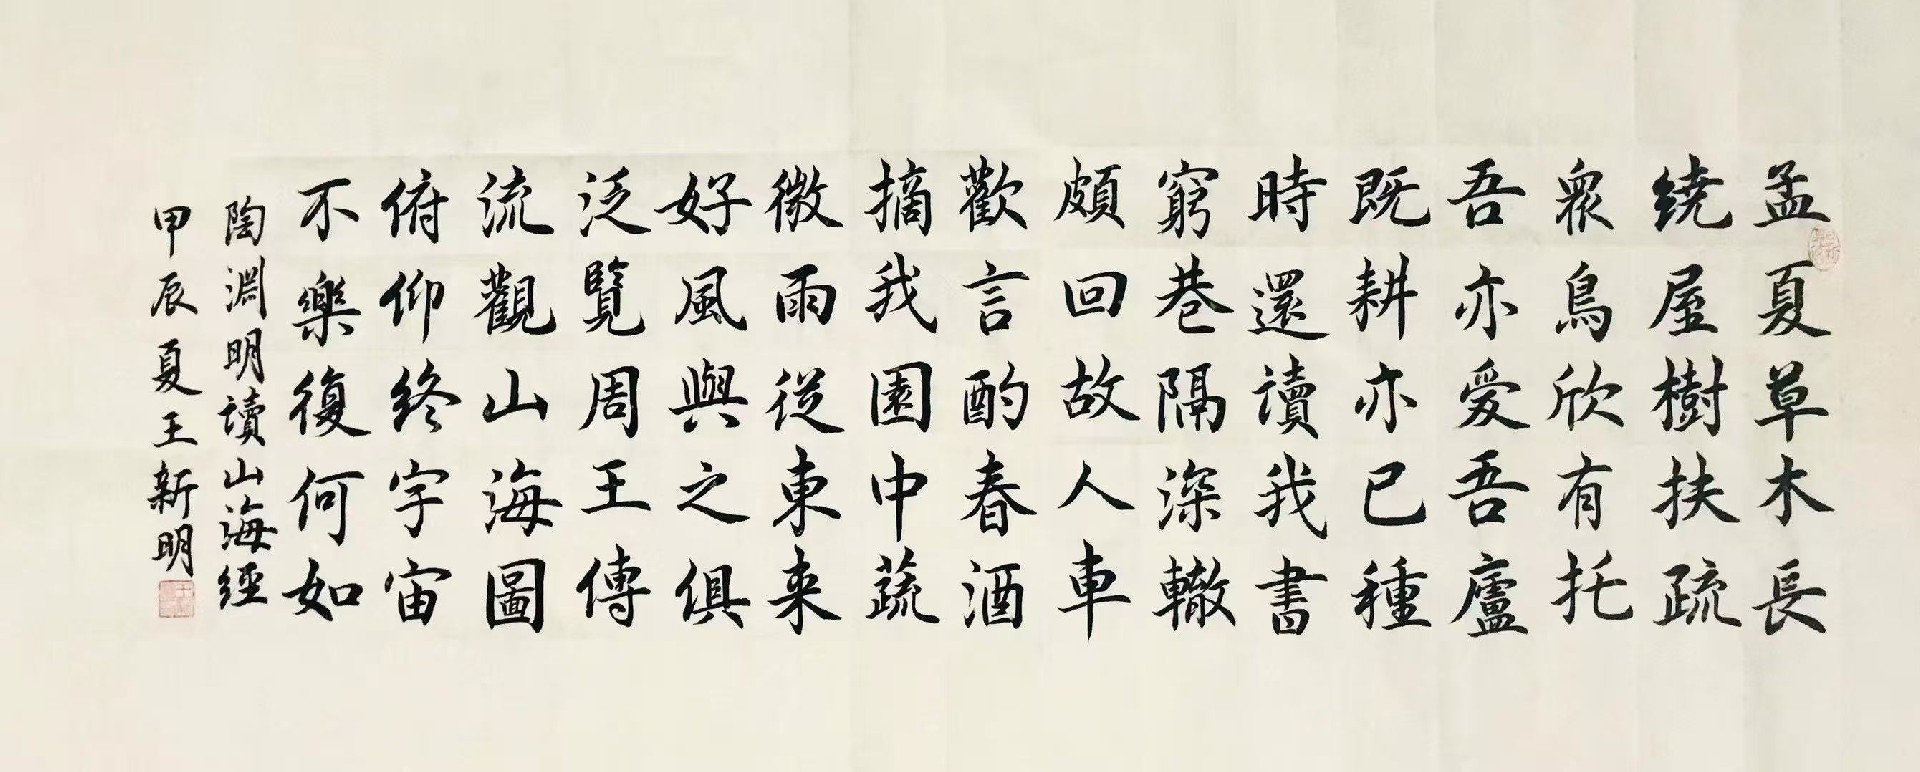 孟夏草木長
繞屋樹扶疏
衆鳥欣有托
吾亦愛吾廬
既耕亦已種
時還讀我書
窮巷隔深轍
頗回故人車
歡言酌春酒
摘我園中蔬
微雨從東来
好風與之俱
泛覽周王傳
流觀山海圖
俯仰終宇宙
不樂復何如
陶淵明讀山海經
甲辰夏王新明